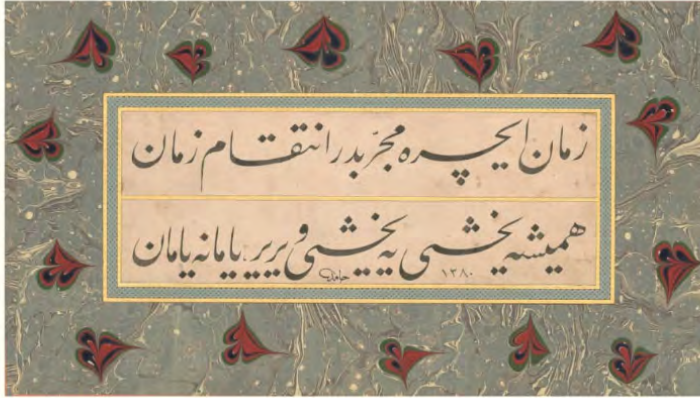 زمان ایچره مجرّبدر انتقام زمان
همیشه یخشی یه یخشی ویریر یامانه یامان
١٣٨٠ حامد